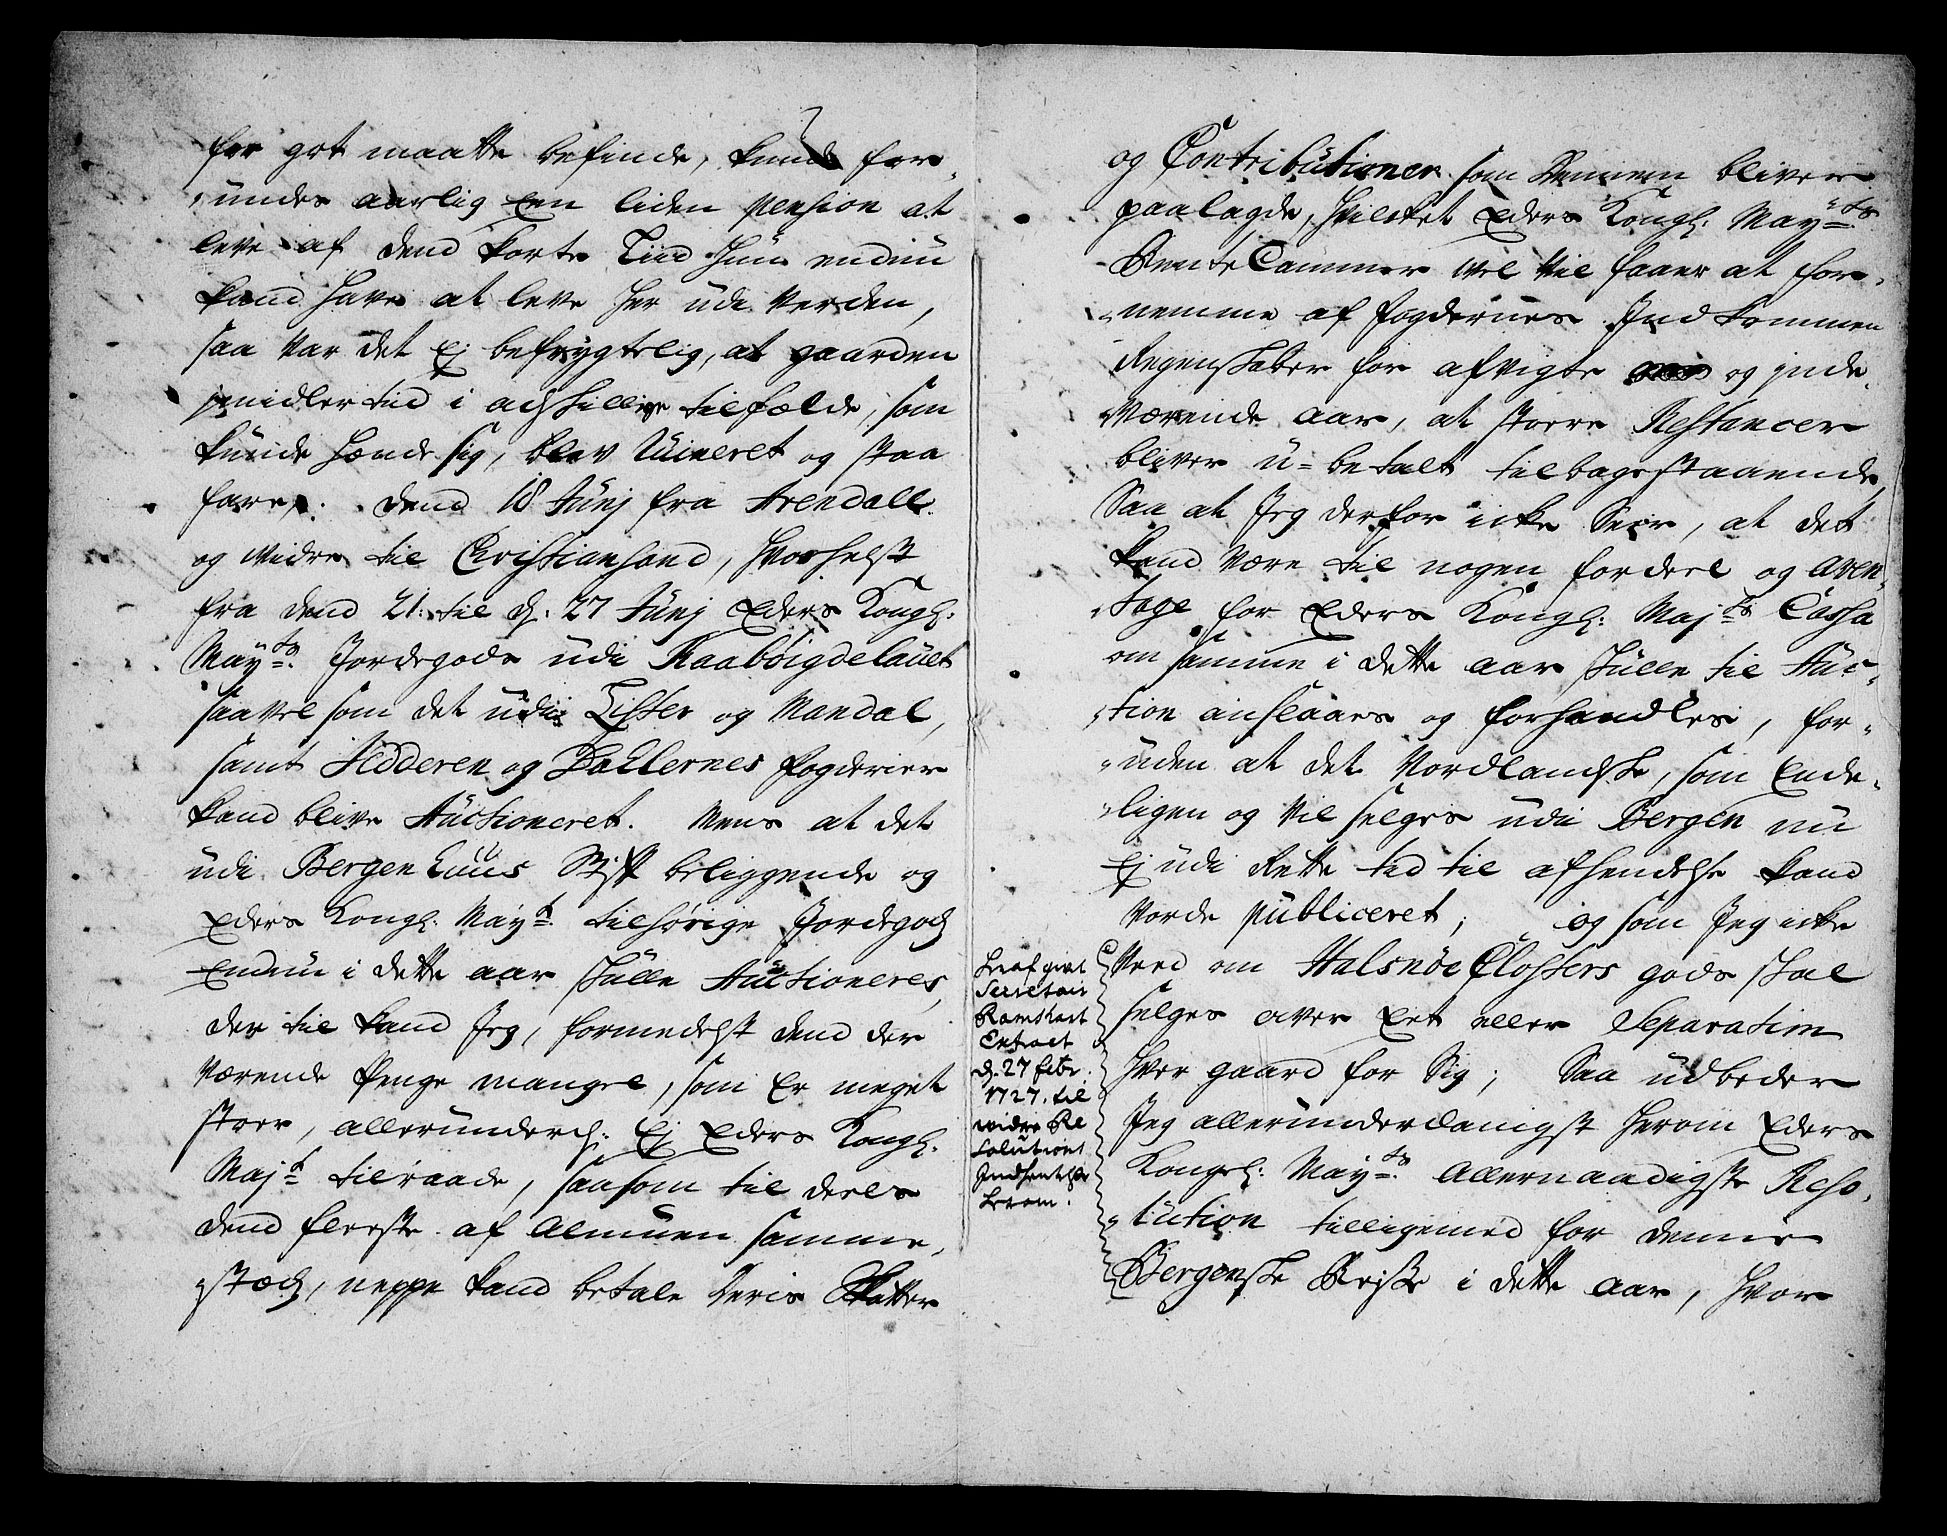 for got maatte befinde, kunde for-
undes aarlig Een liden pension at
leve af dend korte Tiid Hun endnu
kand have at leve her udi Verden,
saa var det Ej befrygtelig, at gaarden
jmidlertid i adskillige tilfælde, som
kunde hænde sig, blev Ruineret og staa
fare. dend 18 Junj fra Arendall
og widre til Christiansand, hvorhelst
fra dend 21. til d. 27 Junj Eders Kongl:
Mayts. Jordegods udi Raabøigdelauet
saavel som det udi Lister og Mandal,
samt Jedderen og Dallernes fogderier
kand blive Auctioneret. Mens at det
udi Bergenhuus Stift beliggende og
Eders Kongl: Mayt. tilhørige Jordegods
Endnu i dette aar skulle Auctioneres,
der til kand Jeg, formedelst dend der
værende Penge mangel, som Er meget
stoer, allerunderd: Ej Eders Kongl:
Majt tilraade, saasom til deels
dend fleeste af Almuen samme-
stæds, neppe kand betale deris Skatter
og Contributioner som dennem bliver
paalagde, hvilcket Eders Kongl: Mayts.
RenteCammer vel vil faaer at for-
nemme af fogdernes Indkommen
Regenskaber for afvigte og jnde-
værende aar, at stoere Restancer
bliver u-betalt tilbagestaaende,
Saa at Jeg derfor icke Seer, at det
kand være til nogen fordeel og aven-
tage for Eders Kongl: Majts Cassa
om samme i dette aar skulle til Auc-
tion anslaaes og forhandles, for-
uden at det Nordlandske, som Ende-
ligen og vil selges udi Bergen nu
Ej udi Rette tid til afhendelse kand
vorde publiceret; og som Jeg icke
Veed om Halsnøe Closters gods skal
selges over Eet eller Separatim
hver gaard for Sig; Saa udbeder
Jeg allerunderdanigst herom Eders
Kongel: Mayts. Allernaadigste Reso-
lution tilligemed for denne
Bergenske Reise i dette aar, hvor
heraf giort
Secretair
Ramshart
Extract
d. 27 febr.
1727. til
widre Re
solutions
Indhentelse
herom.